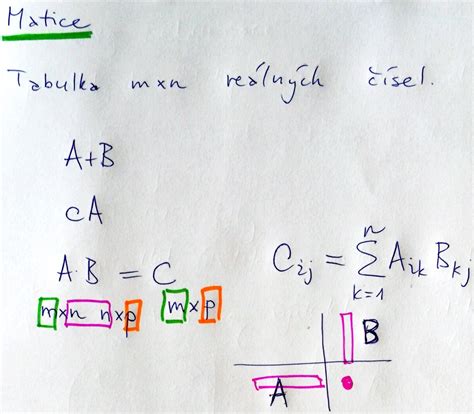 Matice
Tabulka m×n reálných čísel.
A+B
cA
A·B = C
m×n n×p m×p
C_{ij} = \sum_{k=1}^{n} A_{ik} B_{kj}
B
A